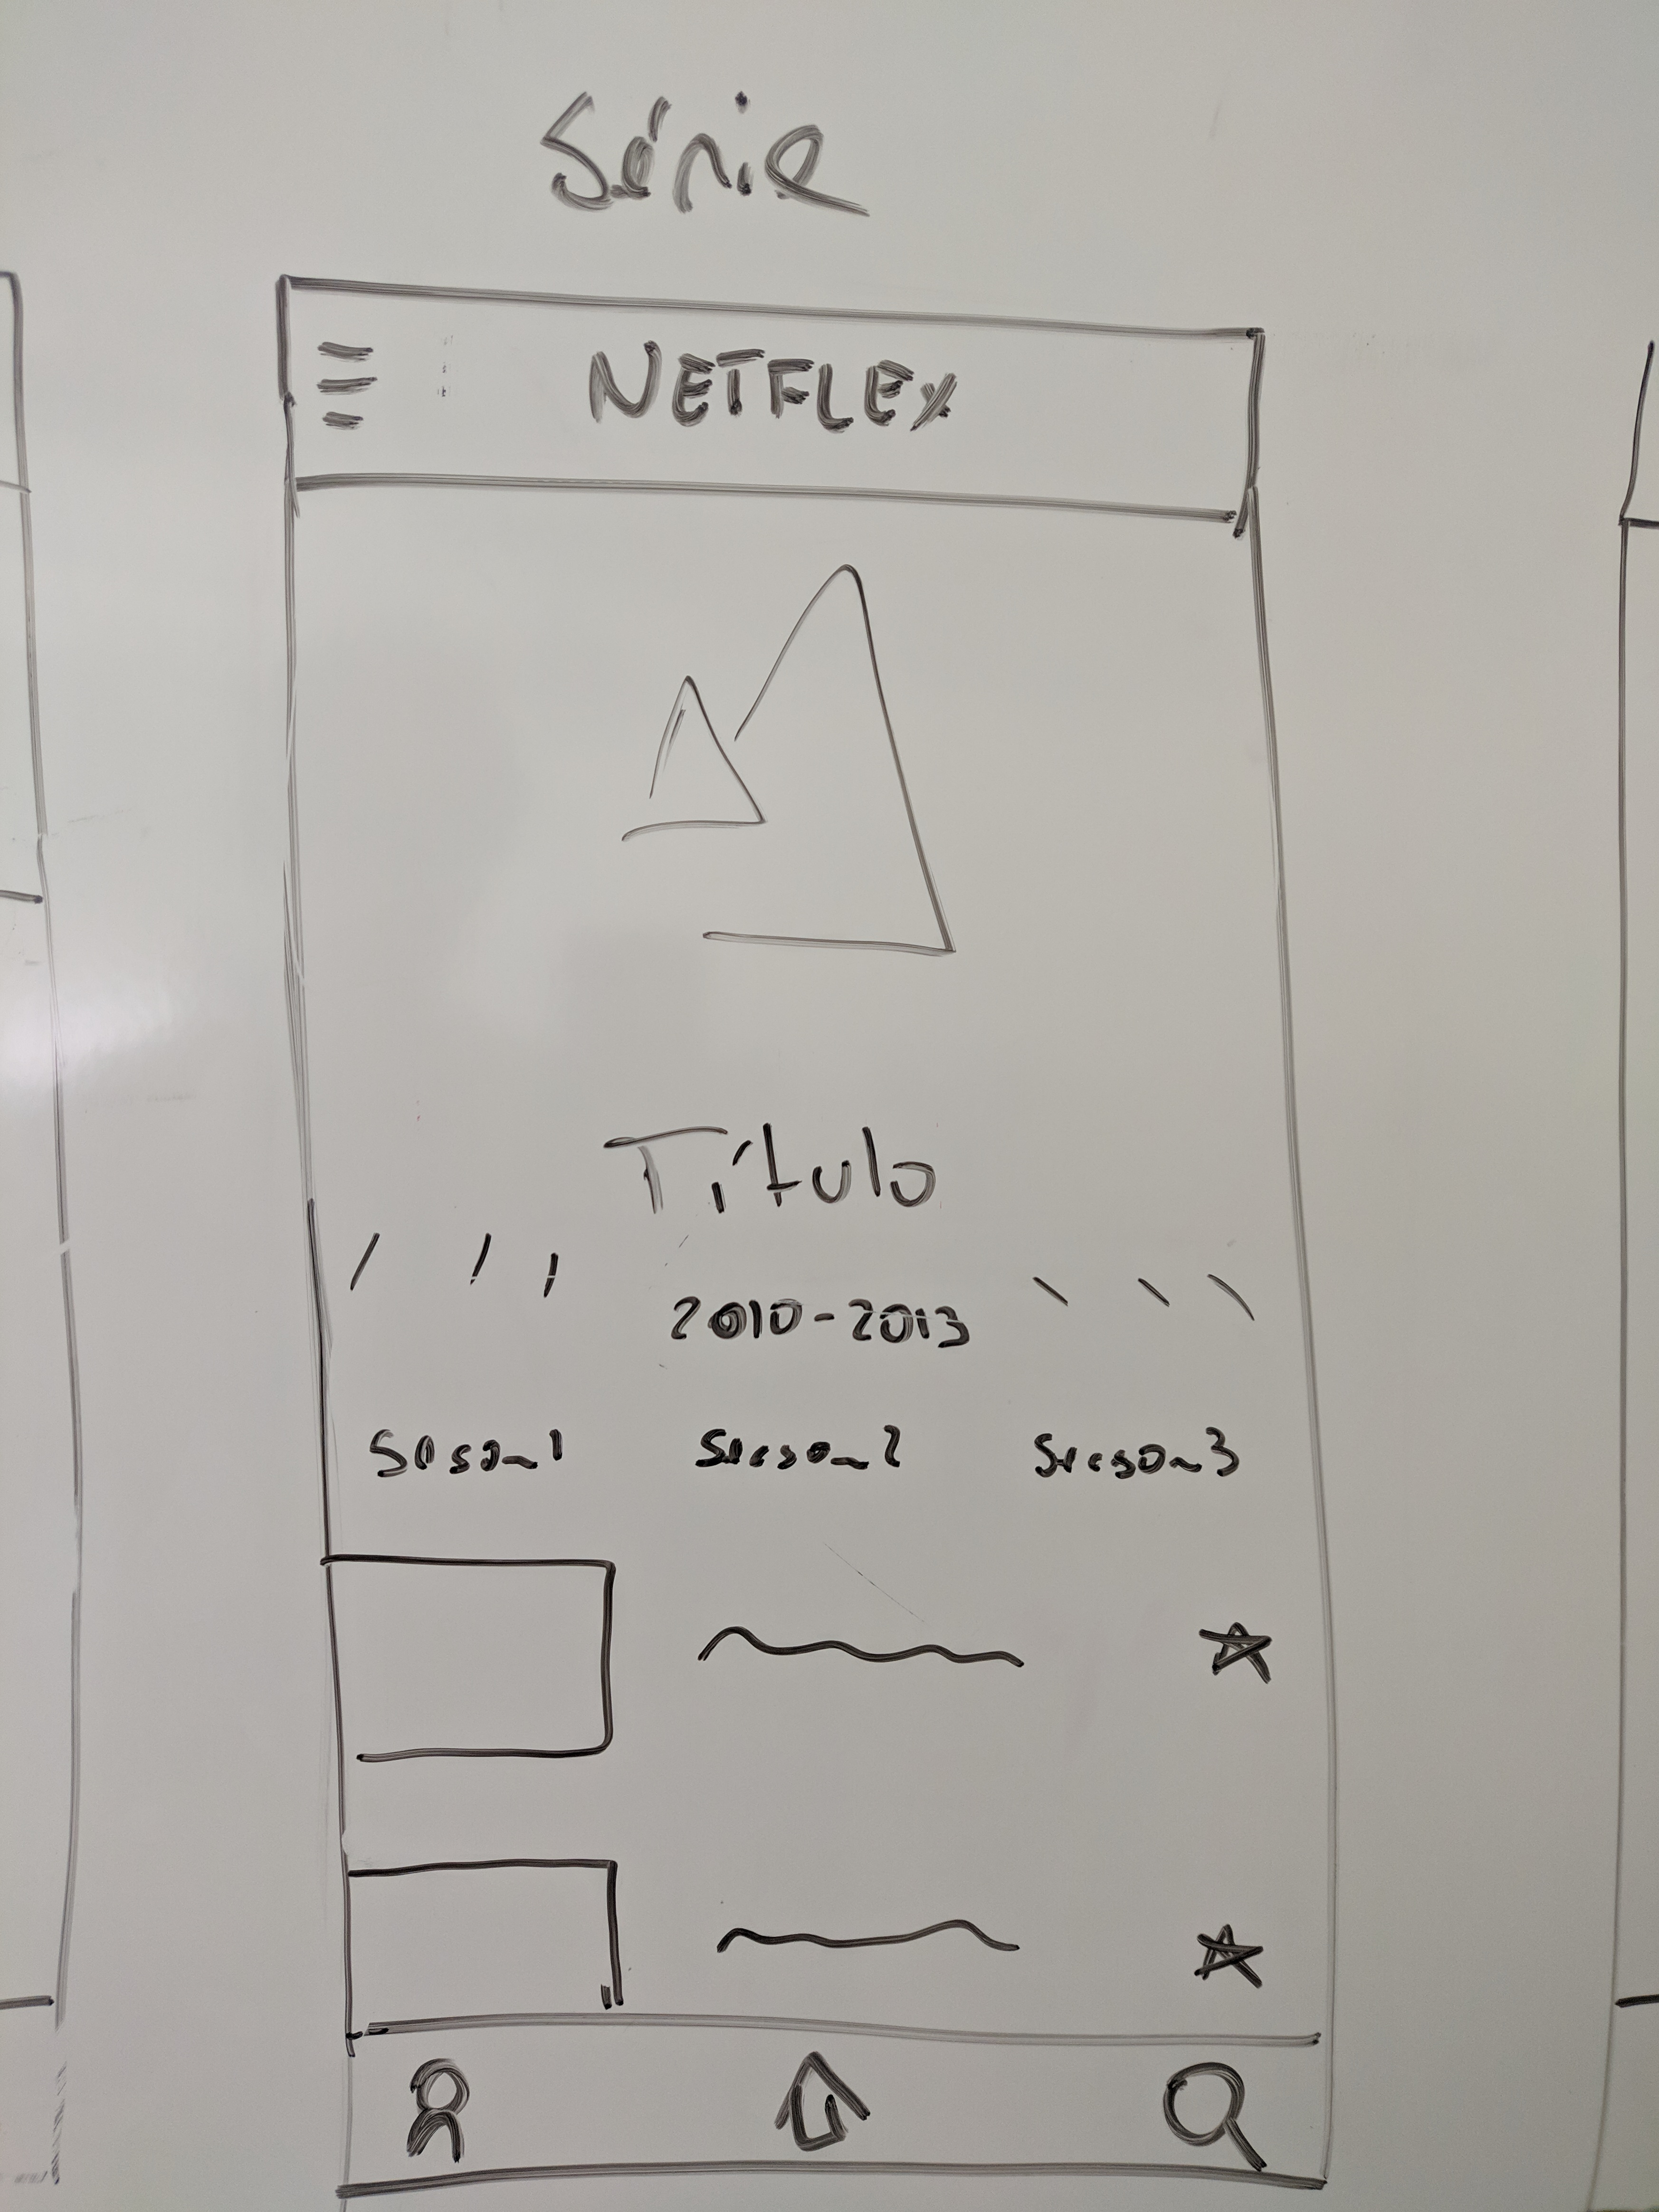 Série
NETFLEX
Título
2010-2013
Season 1 Season 2 Season 3